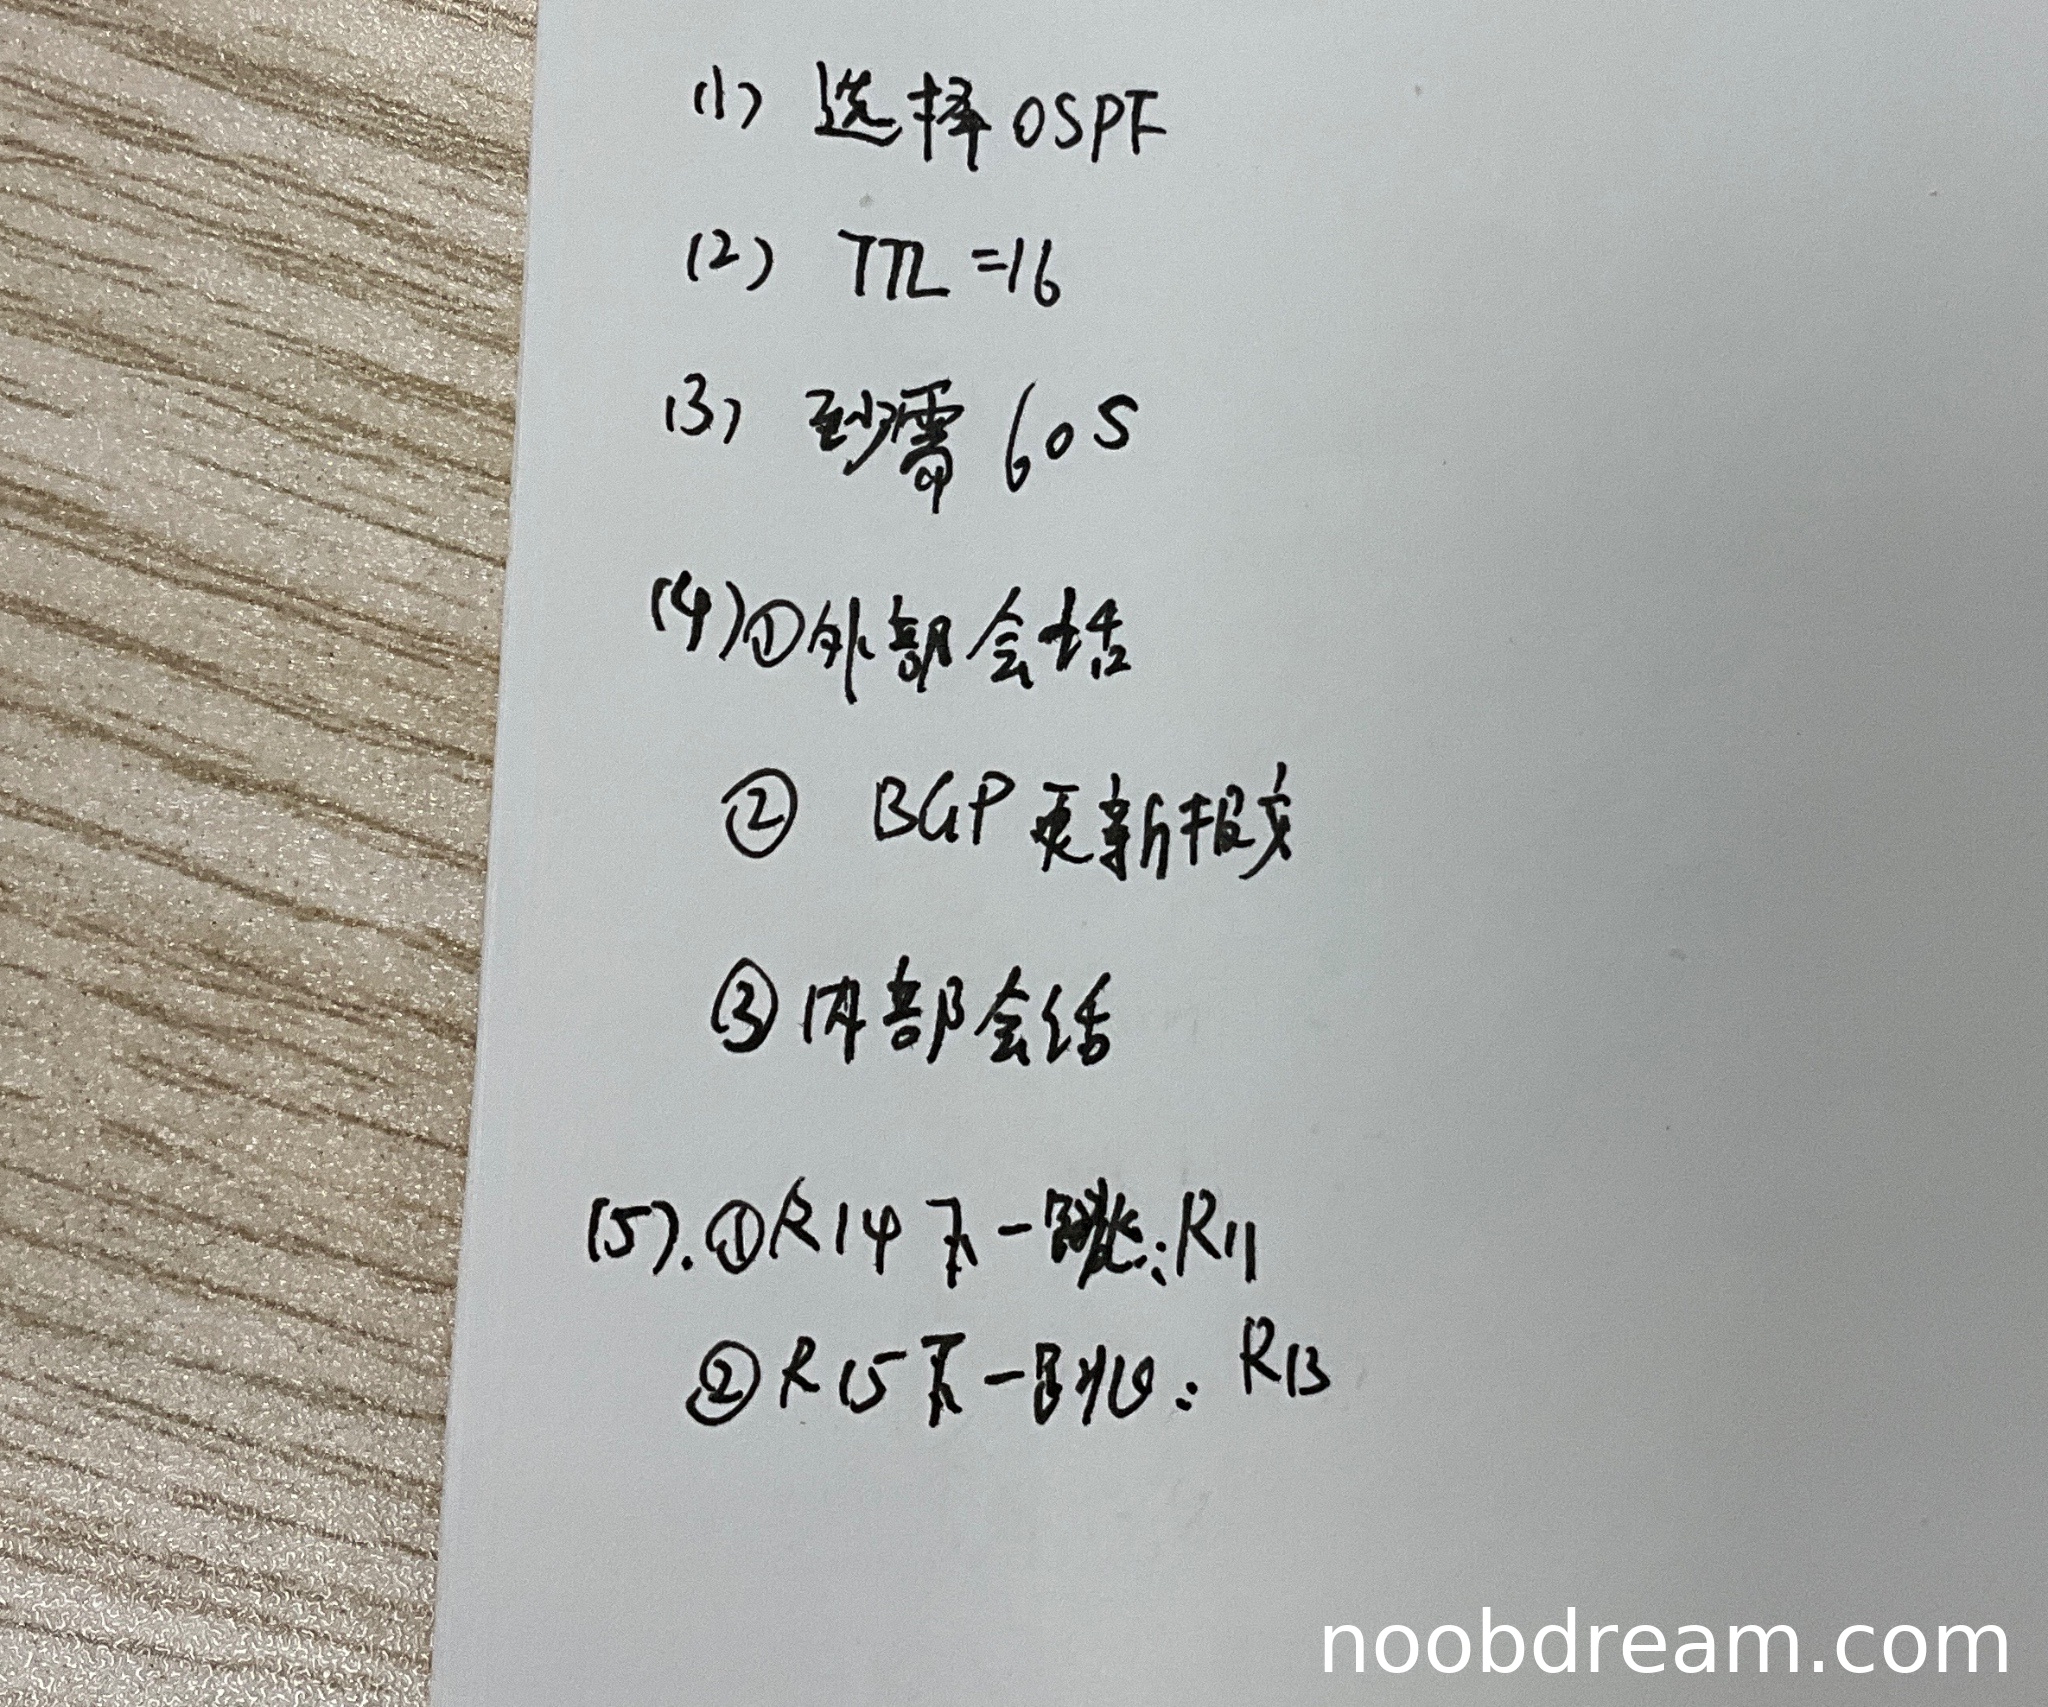 (1) 选择OSPF
(2) TTL=16
(3) 到需 60S
(4) ①外部会话
② BGP更新报文
③内部会话
(5). ①R14下一跳:R11
②R15下一跳: R13
noobdream.com